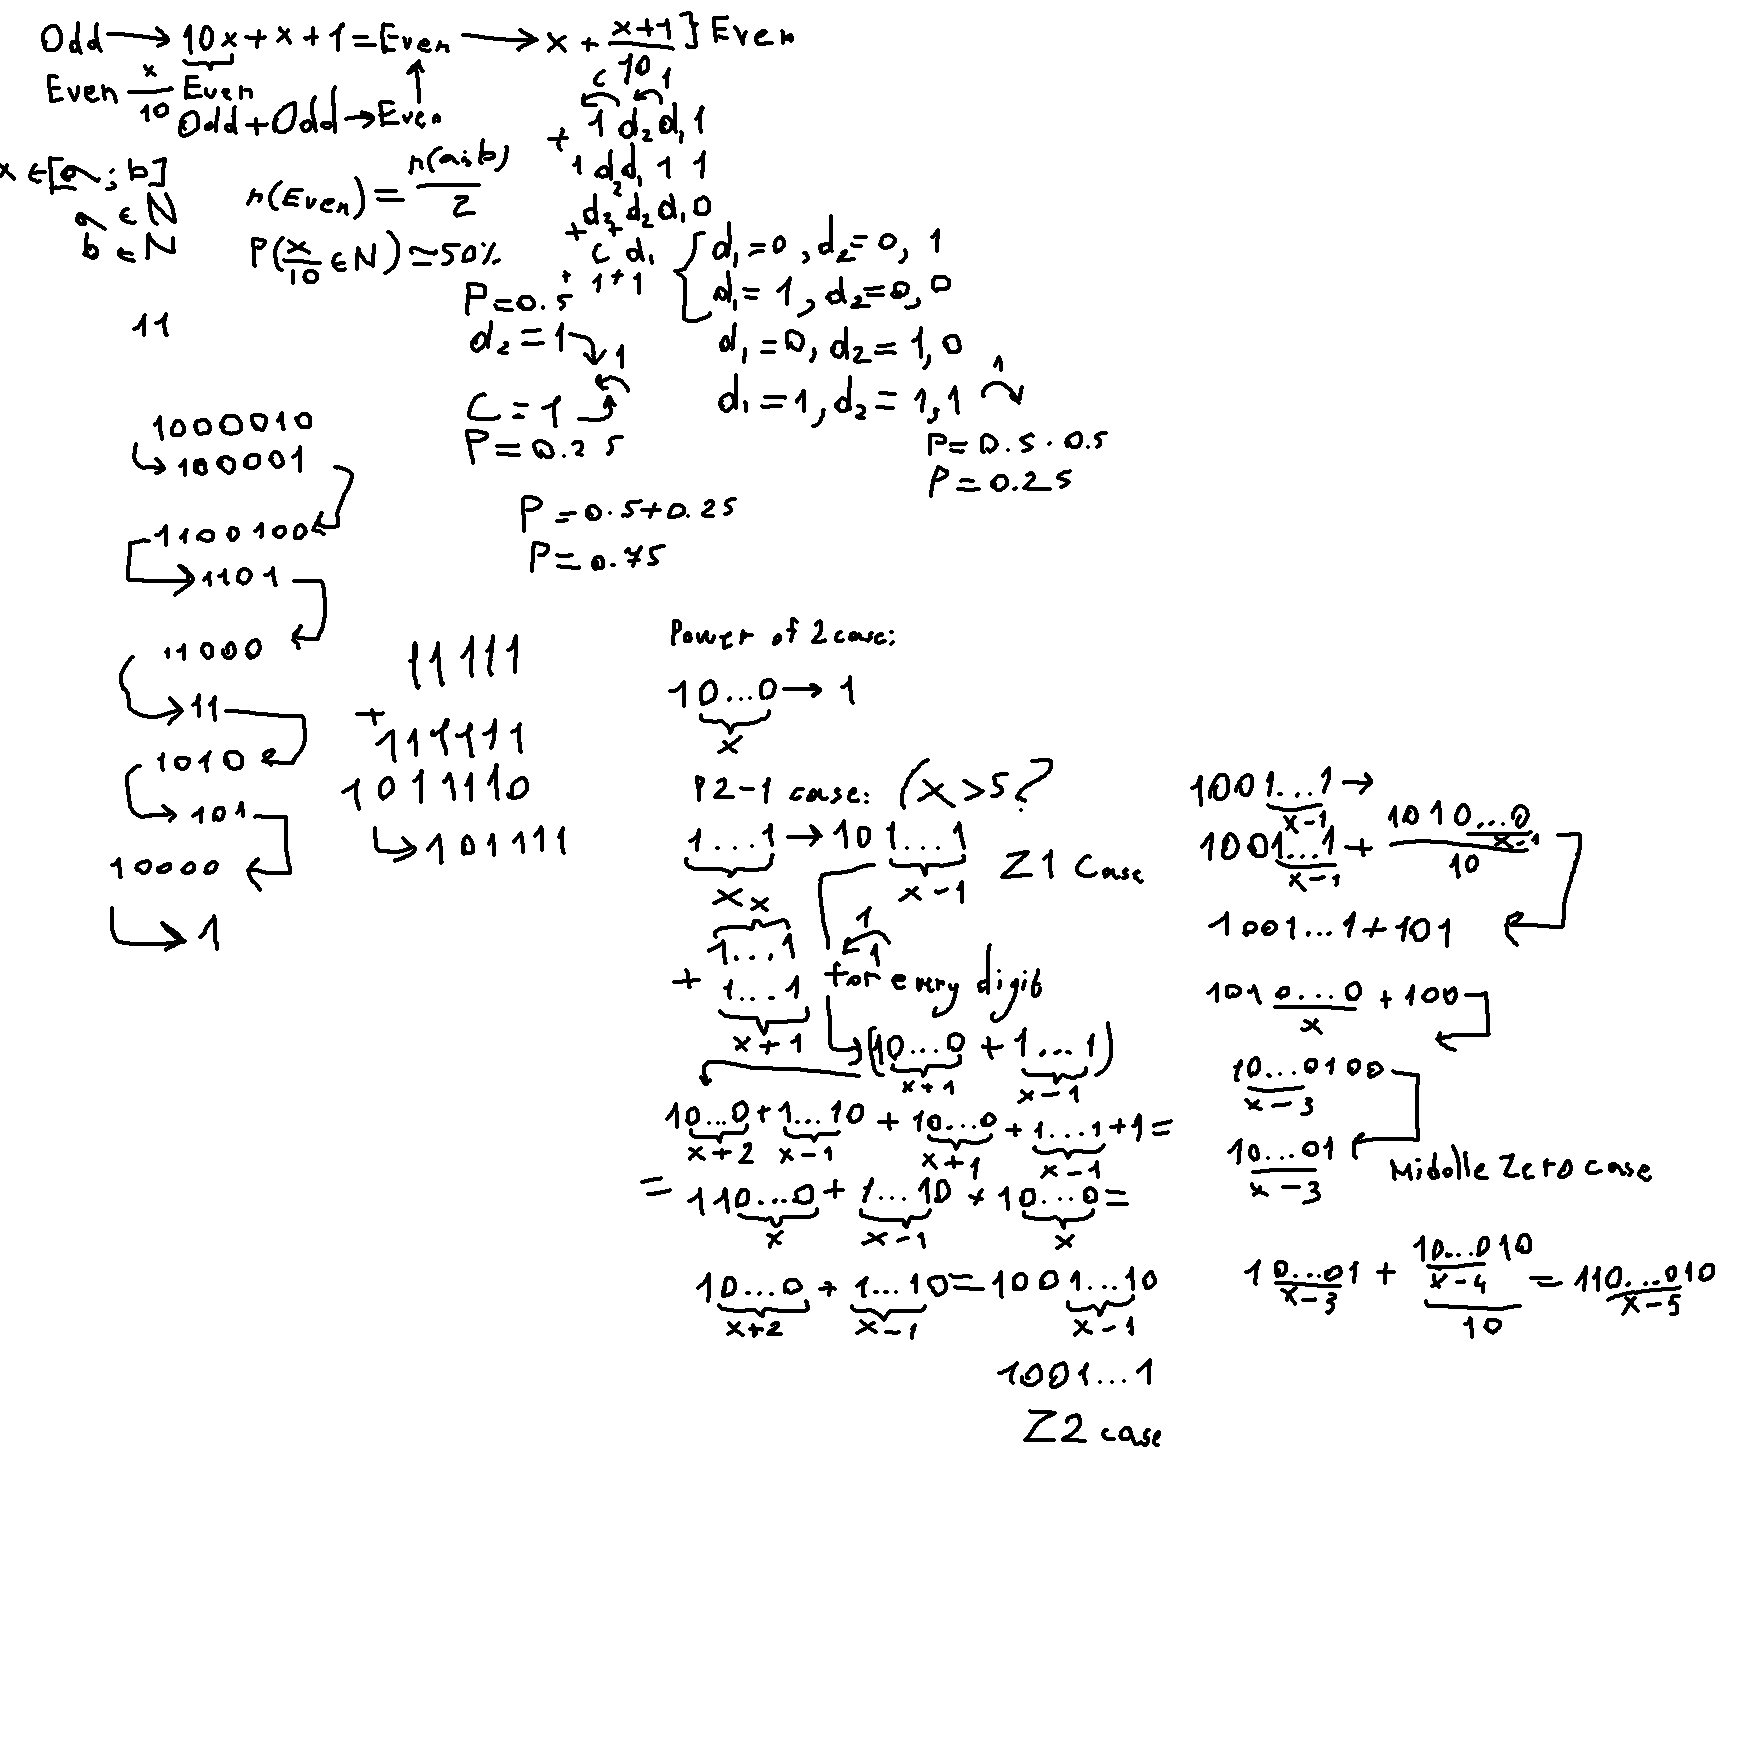 Odd → 10x + x + 1 = Even → x + (x+1)/10 } Even
Even x/10 Even
Odd + Odd → Even
x ∈ [a; b]
a ∈ N
b ∈ N
n(Even) = n(a;b)/2
P(x/10 ∈ N) ≃ 50%
c 1
1 d₂ d₁ 1
+
1 d₂ d₁ 1 1
d₂ d₂ d₁ 0
+ +
c d₁
+ 1 + 1
{ d₁ = 0, d₂ = 0, 1
d₁ = 1, d₂ = 0, 0
d₁ = 0, d₂ = 1, 0
d₁ = 1, d₂ = 1, 1 1
P = 0.5 · 0.5
P = 0.25
P = 0.5
d₂ = 1
1
C = 1
P = 0.25
P = 0.5 + 0.25
P = 0.75
11
1000010
↳ 100001
1100100
→ 1101
11000
→ 11
1010
→ 101
10000
→ 1
11111
+
111111
1011110
↳ 101111
Power of 2 case:
10...0 → 1
x
P2-1 case: (x > 5?
1...1 → 10 1...1
x x-1
Z1 Case
x
1...1
+ 1...1
x+1
1
1
for every digit
(10...0 + 1...1)
x+1 x-1
10...0 + 1...10 + 10...0 + 1...1 + 1 =
x+2 x-1 x+1 x-1
= 110...0 + 1...10 + 10...0 =
x x-1 x
10...0 + 1...10 = 1001...10
x+2 x-1 x-1
1001...1
Z2 case
1001...1 →
x-1
1001...1 + 1010...0/10
x-1 x-1
1001...1 + 101
1010...0 + 100
x
10...0100
x-3
10...01
x-3
Middle Zero case
10...01 + 10...010/10 = 110...010
x-3 x-4 x-5